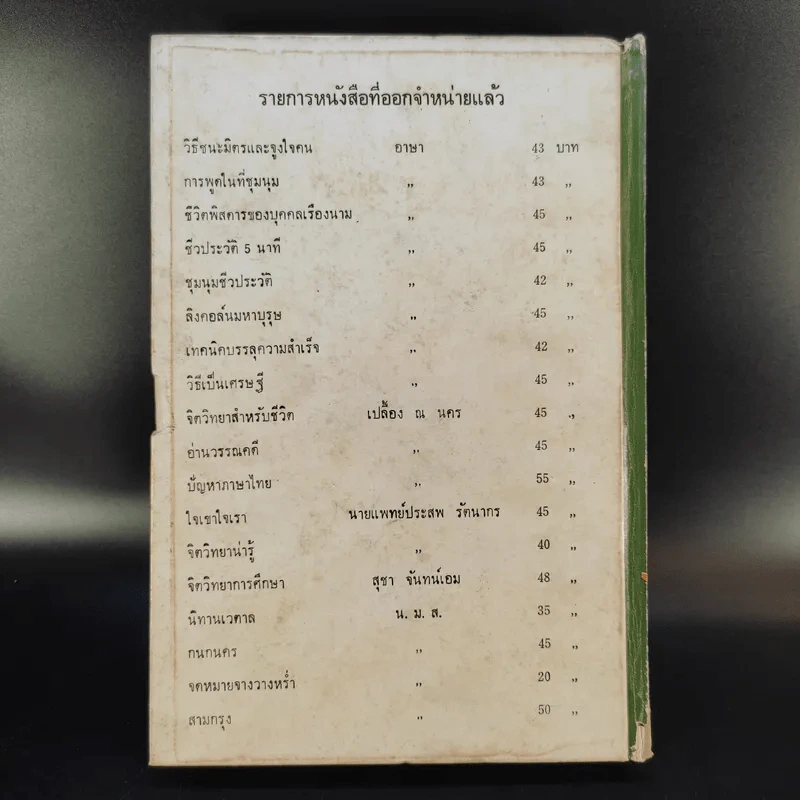 รายการหนังสือที่ออกจำหน่ายแล้ว
วิธีชนะมิตรและจูงใจคน อาษา 43 บาท
การพูดในที่ชุมนุม ,, 43 ,,
ชีวิตพิสดารของบุคคลเรืองนาม ,, 45 ,,
ชีวประวัติ 5 นาที ,, 45 ,,
ชุมนุมชีวประวัติ ,, 42 ,,
ลิงคอล์นมหาบุรุษ ,, 45 ,,
เทคนิคบรรลุความสำเร็จ ,, 42 ,,
วิธีเป็นเศรษฐี ,, 45 ,,
จิตวิทยาสำหรับชีวิต เปลื้อง ณ นคร 45 ,,
อ่านวรรณคดี ,, 45 ,,
ปัญหาภาษาไทย ,, 55 ,,
ใจเขาใจเรา นายแพทย์ประสพ รัตนากร 45 ,,
จิตวิทยาน่ารู้ ,, 40 ,,
จิตวิทยาการศึกษา สุชา จันทน์เอม 48 ,,
นิทานเวตาล น. ม. ส. 35 ,,
กนกนคร ,, 45 ,,
จดหมายจางวางหร่ำ ,, 20 ,,
สามกรุง ,, 50 ,,